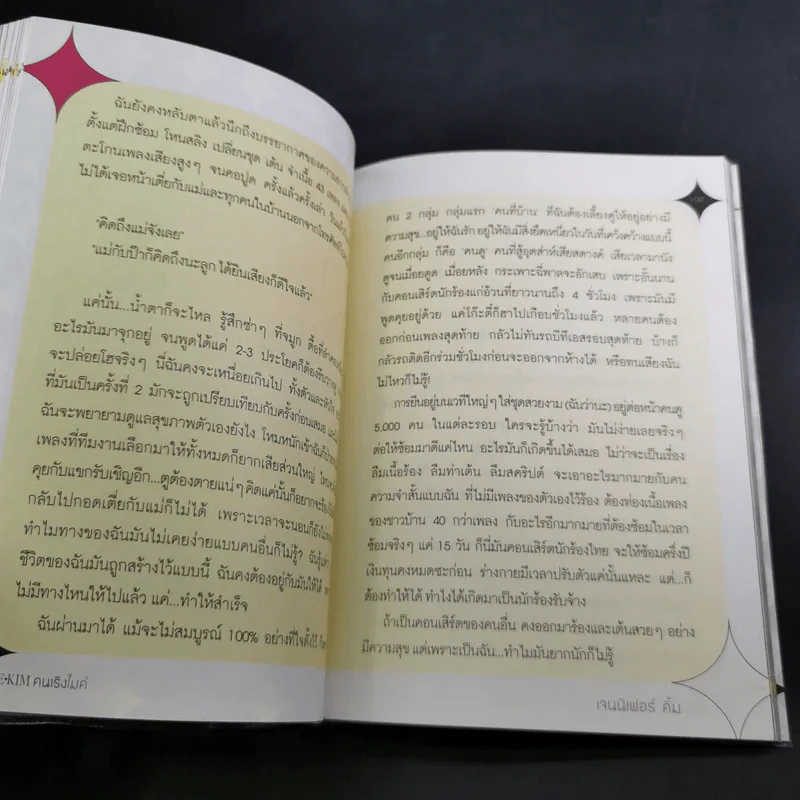 ฉันยังคงหลับตาแล้วนึกถึงบรรยากาศของความ
ตั้งแต่ฝึกซ้อม โหนสลิง เปลี่ยนชุด เต้น จำเนื้อ 43 เพลง
ตะโกนเพลงเสียงสูงๆ จนคอปูด ครั้งแล้วครั้งเล่า
ไม่ได้เจอหน้าเตี่ยกับแม่และทุกคนในบ้านนอกจากโทรศัพท์
"คิดถึงแม่จังเลย"
"แม่กับป๊าก็คิดถึงนะลูก ได้ยินเสียงก็ดีใจแล้ว"
แค่นั้น...น้ำตาก็จะไหล รู้สึกซ่าๆ ที่จมูก ตื้อที่
อะไรมันมาจุกอยู่ จนพูดได้แค่ 2-3 ประโยคก็ต้องรีบวาง
จะปล่อยโฮจริงๆ นี่ฉันคงจะเหนื่อยเกินไป ทั้งตัวและหัวใจ
ที่มันเป็นครั้งที่ 2 มักจะถูกเปรียบเทียบกับครั้งก่อนเสมอ
ฉันจะพยายามดูแลสุขภาพตัวเองยังไง โหมหนักเข้าฉันก็
เพลงที่ทีมงานเลือกมาให้ทั้งหมดก็ยากเสียส่วนใหญ่
คุยกับแขกรับเชิญอีก...ตูต้องตายแน่ๆ คิดแค่นั้นก็อยากจะร้อง
กลับไปกอดเตี่ยกับแม่ก็ไม่ได้ เพราะเวลาจะนอนก็ยังไม่
ทำไมทางของฉันมันไม่เคยง่ายแบบคนอื่นก็ไม่รู้? ฉันรู้แค่
ชีวิตของฉันมันถูกสร้างไว้แบบนี้ ฉันคงต้องอยู่กับมันให้ได้
ไม่มีทางไหนให้ไปแล้ว แค่...ทำให้สำเร็จ
ฉันผ่านมาได้ แม้จะไม่สมบูรณ์ 100% อย่างที่ใจตั้งไว้
E•KIM คนเริงไมค์
คน 2 กลุ่ม กลุ่มแรก 'คนที่บ้าน' ที่ฉันต้องเลี้ยงดูให้อยู่อย่างมี
ความสุข...อยู่ให้ฉันรัก อยู่ให้ฉันมีสิ่งยึดเหนี่ยวในวันที่เคว้งคว้างแบบนี้
คนอีกกลุ่ม ก็คือ 'คนดู' คนที่สู้อุตส่าห์เสียสตางค์ เสียเวลามานั่ง
ดูจนเมื่อยตูด เมื่อยหลัง กระเพาะฉี่พาลจะอักเสบ เพราะอั้นนาน
กับคอนเสิร์ตนักร้องแก่อ้วนที่ยาวนานถึง 4 ชั่วโมง เพราะมันมี
พูดคุยอยู่ด้วย แค่โก๊ะตี๋ก็ฮาไปเกือบชั่วโมงแล้ว หลายคนต้อง
ออกก่อนเพลงสุดท้าย กลัวไม่ทันรถบีทีเอสรอบสุดท้าย บ้างก็
กลัวรถติดอีกร่วมชั่วโมงก่อนจะออกจากห้างได้ หรือทนเสียงฉัน
ไม่ไหวก็ไม่รู้!
การยืนอยู่บนเวทีใหญ่ๆ ใส่ชุดสวยงาม (ฉันว่านะ) อยู่ต่อหน้าคนดู
5,000 คน ในแต่ละรอบ ใครจะรู้บ้างว่า มันไม่ง่ายเลยจริงๆ
ต่อให้ซ้อมมาดีแค่ไหน อะไรมันก็เกิดขึ้นได้เสมอ ไม่ว่าจะเป็นเรื่อง
ลืมเนื้อร้อง ลืมท่าเต้น ลืมสคริปต์ จะเอาอะไรมากมายกับคน
ความจำสั้นแบบฉัน ที่ไม่มีเพลงของตัวเองไว้ร้อง ต้องท่องเนื้อเพลง
ของชาวบ้าน 40 กว่าเพลง กับอะไรอีกมากมายที่ต้องซ้อมในเวลา
ซ้อมจริงๆ แค่ 15 วัน ก็นี่มันคอนเสิร์ตนักร้องไทย จะให้ซ้อมครึ่งปี
เงินทุนคงหมดซะก่อน ร่างกายมีเวลาปรับตัวแค่นั้นแหละ แต่...ก็
ต้องทำให้ได้ ทำไงได้เกิดมาเป็นนักร้องรับจ้าง
ถ้าเป็นคอนเสิร์ตของคนอื่น คงออกมาร้องและเต้นสวยๆ อย่าง
มีความสุข แต่เพราะเป็นฉัน...ทำไมมันยากนักก็ไม่รู้
เจนนิเฟอร์ คิ้ม